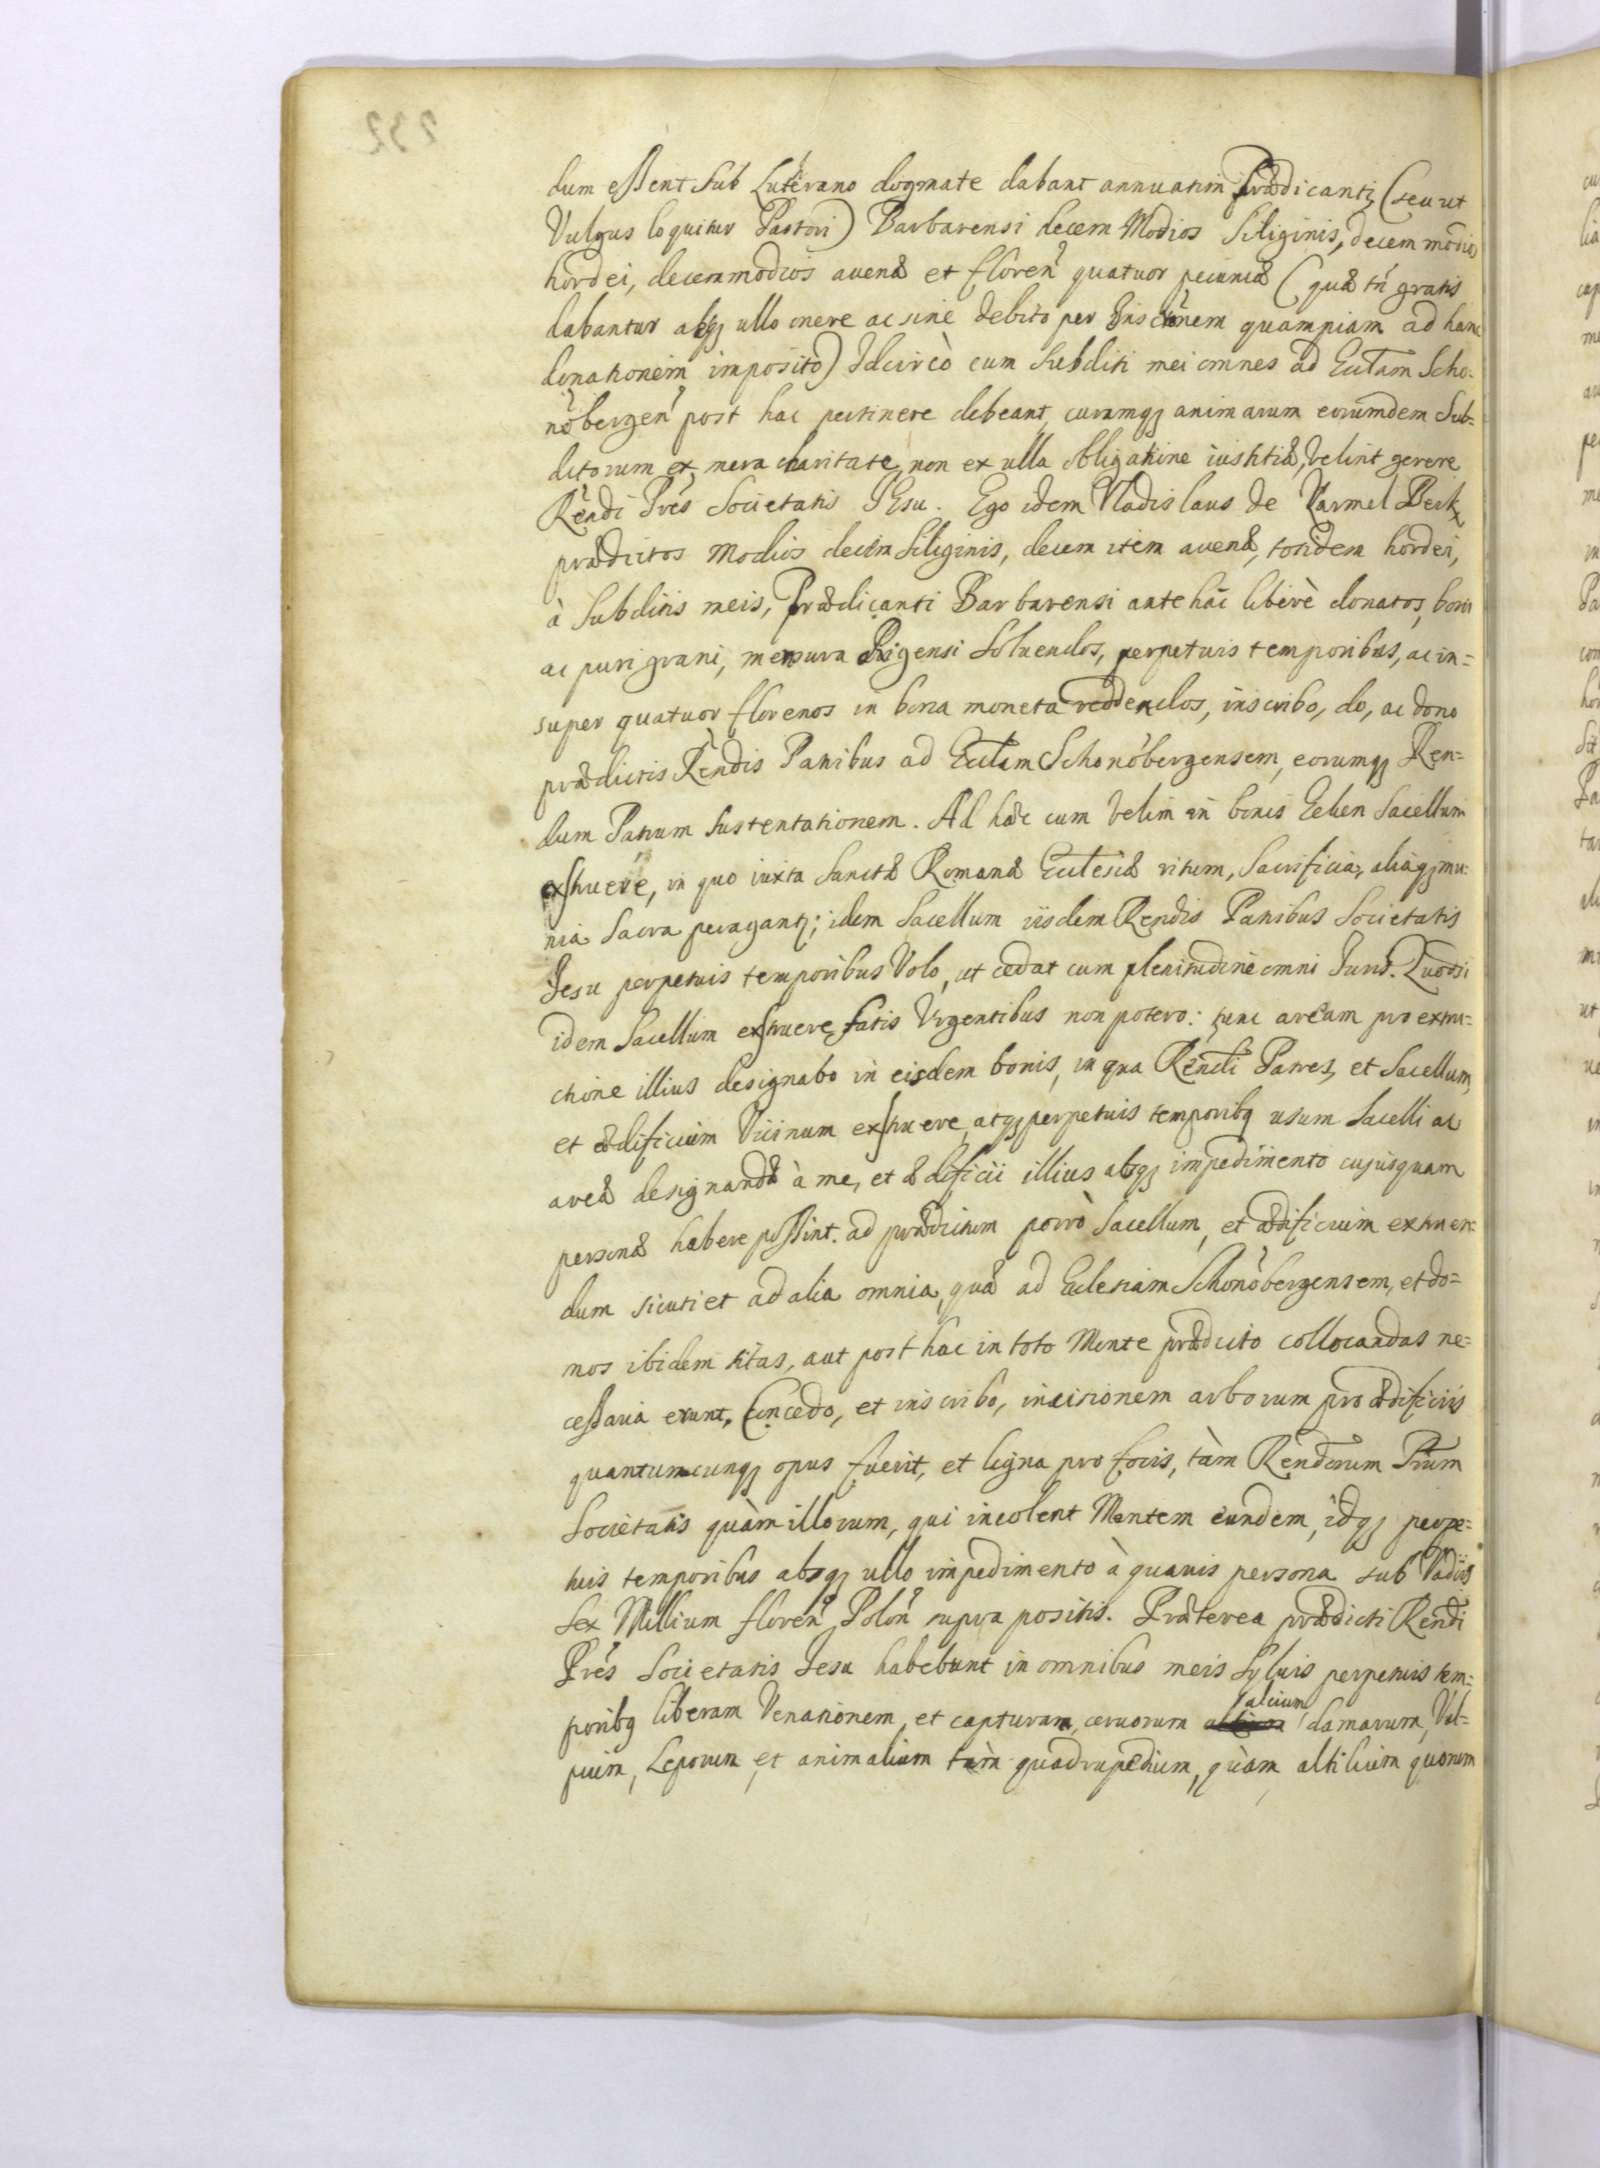 dum essent sub Luterano dogmate dabant annuatim Prædicanti (seu ut
Vulgus loquitur Pastori) Barbarensi decem Modios Siliginis, decem modios
hordei, decem modios auenæ et floren̄ quatuor pecuniæ (quæ tn̄ gratis
dabantur absq; ullo onere ac sine debito per Inscr̄nem quampiam ad hanc
donationem imposito) Idcircò cum subditi mei omnes ad Ecclam Scho-
nobergen̄ post hac pertinere debeant, curamq; animarum eorumdem Sub-
ditorum ex mera charitate, non ex ulla obligatione iustitiæ, velint gerere
Rēndi Prēs Societatis IEsu. Ego idem Vladislaus de Karmel Berk
prædictos Modios decem Siliginis, decem item auenæ, totidem hordei,
à Subditis meis, Prædicanti Barbarensi ante hac liberè donatos, boni
ac puri grani, mensura Rigensi Soluendos, perpetuis temporibus, ac in-
super quatuor florenos in bona moneta reddendos, inscribo, do, ac dono
prædictis Rēndis Patribus ad Ecclam Schonòbergensem, eorumq; Ren-
dum Patrum sustentationem. Ad hæc cum velim in bonis Eclien Sacellum
exstruere, in quo iuxta Sanctæ Romanæ Ecclesiæ ritum, Sacrificia, aliaq; mu-
nia Sacra peragant; idem Sacellum iisdem Rendis Patribus Societatis
Jesu perpetuis temporibus Volo, ut cedat cum plenitudine omni Juris. Quodsi
idem Sacellum exstruere, fatis Urgentibus non potero: tunc aream pro extru-
ctione illius designabo in eisdem bonis, in qua Rēndi Patres, et Sacellum,
et ædificium Vicinum exstruere, atq; perpetuis temporibq usum Sacelli ac
areæ designandæ à me, et ædificii illius absq; impedimento cujusquam
personæ habere possint. ad prædictum porrò Sacellum, et ædificium extruen-
dum sicuti et ad alia omnia, quæ ad Eclesiam Schonòbergensem, et do-
mos ibidem sitas, aut post hac in toto Monte prædicto collocandas ne-
cessaria erunt, Concedo, et inscribo, incisionem arborum pro ædificiis
quantumcunq; opus fuerit, et ligna pro focis, tàm Rendorum Prum
Societatis quàm illorum, qui incolent Montem eundem, idq; perpe-
tuis temporibus absq; ullo impedimento à quauis persona sub Vadiis
sex Millium floren̄ Polon̄ supra positis. Præterea prædicti Rendi
Prēs Societatis Jesu habebunt in omnibus meis Syluis perpetuis tem-
poribq liberam Venationem, et capturam, ceruorum alcium damarum, Vul-
pium, Leporum, et animalium tàm quadrupedium, quàm altilium quorum